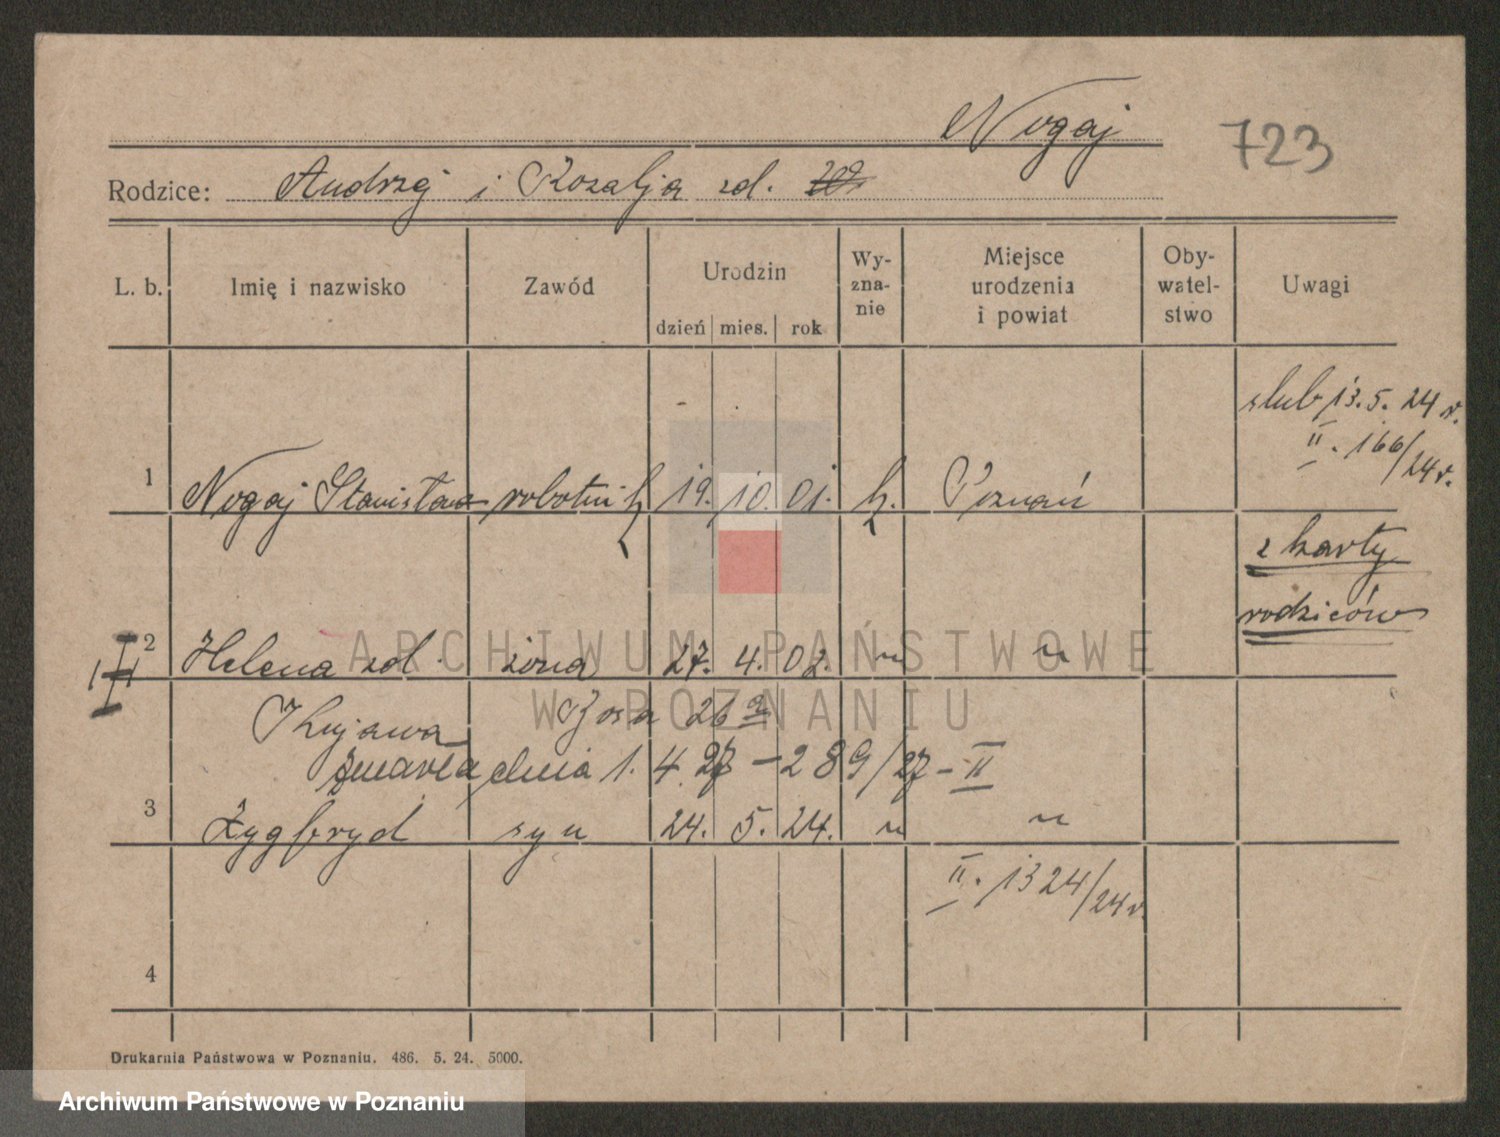 Nogaj
723
Rodzice: Andrzej i Rozalja zd.
L. b. Imię i nazwisko Zawód Urodzin Wy-zna-nie Miejsce urodzenia i powiat Oby-watel-stwo Uwagi
dzień mies. rok
ślub 13. 5. 24 r.
II. 166/24 r.
1 Nogaj Stanisław robotnik 19. 10. 01. k. Poznań
z karty
rodziców
2 Helena zd. żona 27. 4. 02. " "
Kujawa
zmarła dnia 1. 4. 27 – 289/27 – II
3 Zygfryd syn 24. 5. 24. " "
II. 1324/24 r.
4
Drukarnia Państwowa w Poznaniu. 486. 5. 24. 5000.
ARCHIWUM PAŃSTWOWE
W POZNANIU
Archiwum Państwowe w Poznaniu